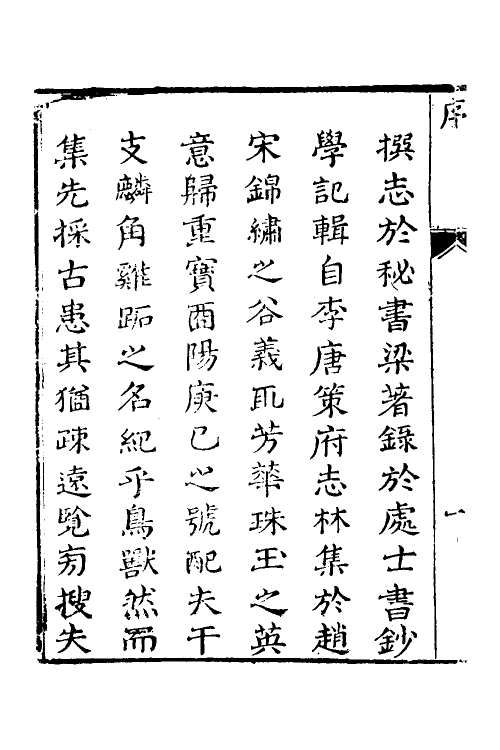 序
一
撰志於秘書梁著錄於處士書鈔
學記輯自李唐策府志林集於趙
宋錦繡之谷義取芳華珠玉之英
意歸重寶酉陽庚巳之號配夫干
支麟角雞跖之名紀乎鳥獸然而
集先採古患其猶疎遠覧旁搜失